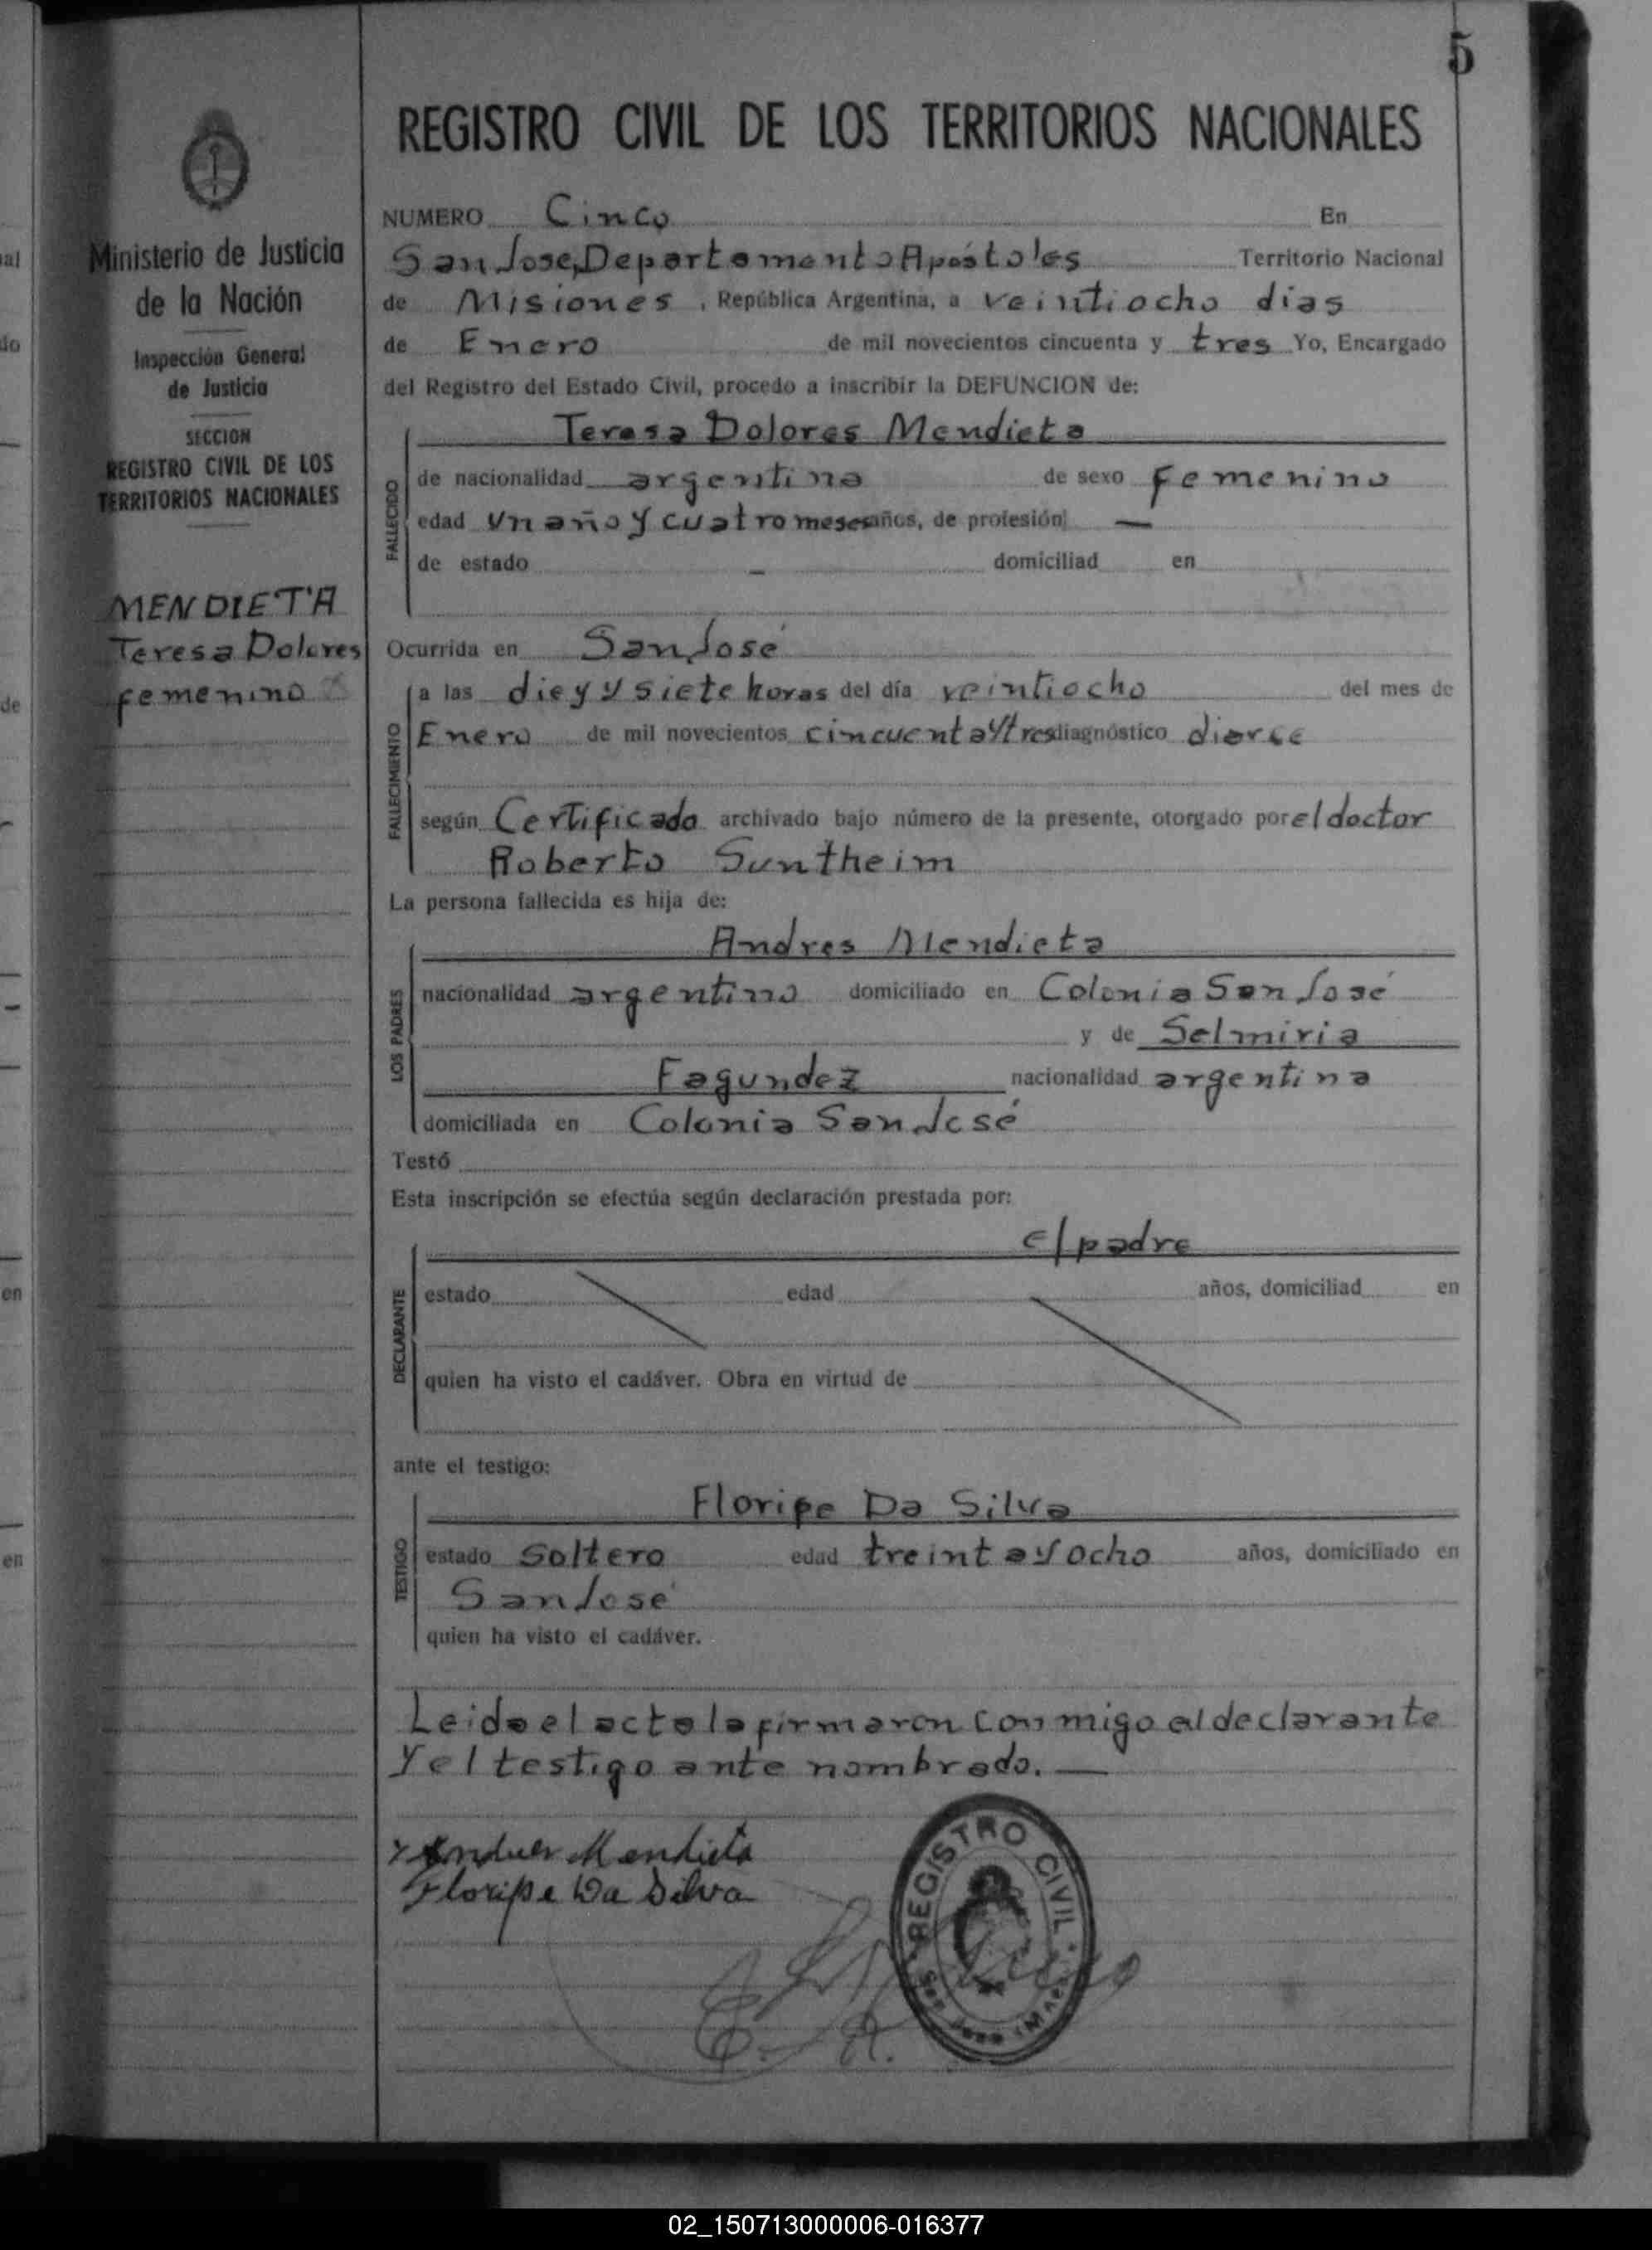 5
REGISTRO CIVIL DE LOS TERRITORIOS NACIONALES
Ministerio de Justicia
de la Nación
Inspección General
de Justicia
SECCION
REGISTRO CIVIL DE LOS
TERRITORIOS NACIONALES
MENDIETA
Teresa Dolores
femenino
NUMERO Cinco En
San Jose, Departamento Apóstoles Territorio Nacional
de Misiones, República Argentina, a veintiocho dias
de Enero de mil novecientos cincuenta y tres Yo, Encargado
del Registro del Estado Civil, procedo a inscribir la DEFUNCION de:
Teresa Dolores Mendieta
FALLECIDO
de nacionalidad argentina de sexo femenino
edad un año y cuatro meses años, de profesión —
de estado – domiciliad en
Ocurrida en San José
FALLECIMIENTO
a las diez y siete horas del día veintiocho del mes de
Enero de mil novecientos cincuenta y tres diagnóstico
según Certificado archivado bajo número de la presente, otorgado por el doctor
Roberto Suntheim
La persona fallecida es hija de:
LOS PADRES
Andres Mendieta
nacionalidad argentino domiciliado en Colonia San José
y de Selmiria
Fagundez nacionalidad argentina
domiciliada en Colonia San José
Testó
Esta inscripción se efectúa según declaración prestada por:
DECLARANTE
el padre
estado edad años, domiciliad en
quien ha visto el cadáver. Obra en virtud de
ante el testigo:
TESTIGO
Floripe Da Silva
estado Soltero edad treinta y ocho años, domiciliado en
San José
quien ha visto el cadáver.
Leida el acta la firmaron conmigo el declarante
y el testigo ante nombrado. —
x Andres Mendieta
Floripe Da Silva
REGISTRO CIVIL
02_150713000006-016377